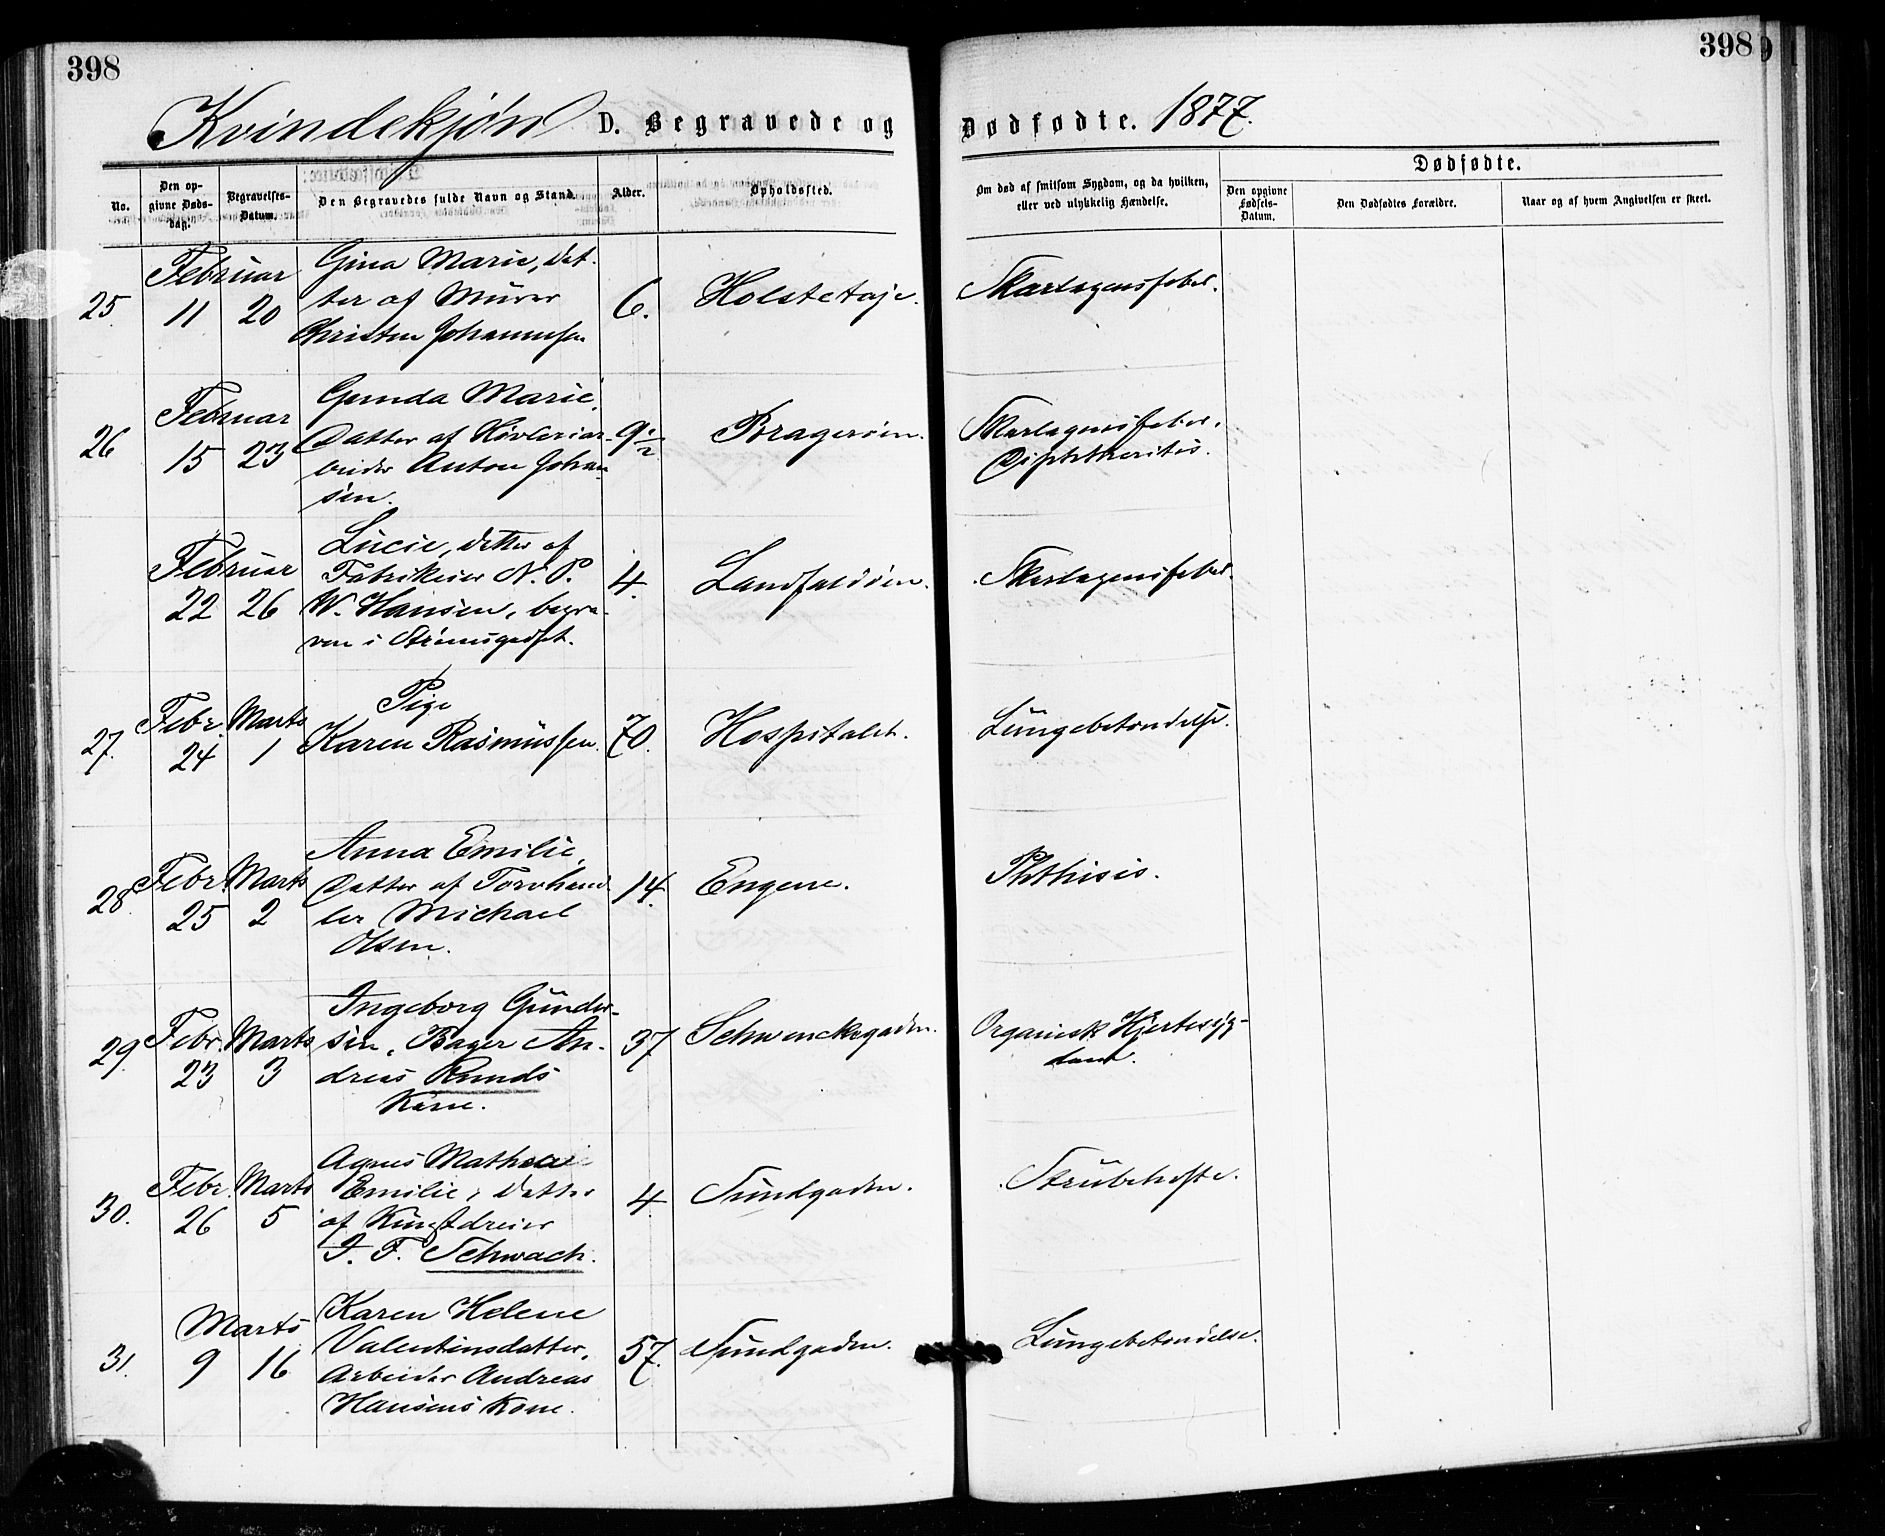 398
398
Kvindekjøn D. Begravede og Dødfødte. 1877.
No.
Den opgivne Dødsdag.
Begravelses-Datum.
Den Begravedes fulde Navn og Stand.
Alder.
Opholdssted.
Om død af smitsom Sygdom, og da hvilken, eller ved ulykkelig Hændelse.
Dødfødte.
Den opgivne Fødsels-Datum.
Den Dødfødtes Forældre.
Naar og af hvem Angivelsen er skeet.
25.
Februar
11
20
Gina Marie, Dat-
ter af Murer
Christen Johannesen
6.
Skarlagensfeber.
26
Februar
15
23
Gunda Marie,
Datter af Høvleriar-
beider Anton Johan-
sen.
9 1/2
Bragerøen.
Skarlagensfeber.
Diphtheritis.
Februar
22
26
Lucie, Datter af
Fabrikeier N. P.
W. Hansen, begra-
ven i Strømsgodset.
4.
Landfaldøen.
Skarlagensfeber.
27.
Febr.
24
Marts
1
Pige
Karen Rasmussen.
70.
Hospitalet.
Lungebetændelse.
28.
Febr.
25
Marts
2
Anna Emilie,
Datter af Torvhand-
ler Michael
Olsen.
14.
Engene.
Phthisis.
29.
Febr.
23
Marts
3
Ingeborg Gunder-
sen, Bager An-
dreas Runds
Kone.
37
Schwenckegaden.
Organisk Hjertesyg-
dom.
30.
Febr.
26
Marts
5
Agnes Mathea
Emilie, Datter
af Kunstdreier
J. F. Schwach.
4.
Sundgaden.
Strubehoste.
31.
Marts
9
16
Karen Helene
Valentinsdatter,
Arbeider Andreas
Hansens Kone.
57.
Sundgaden.
Lungebetændelse.